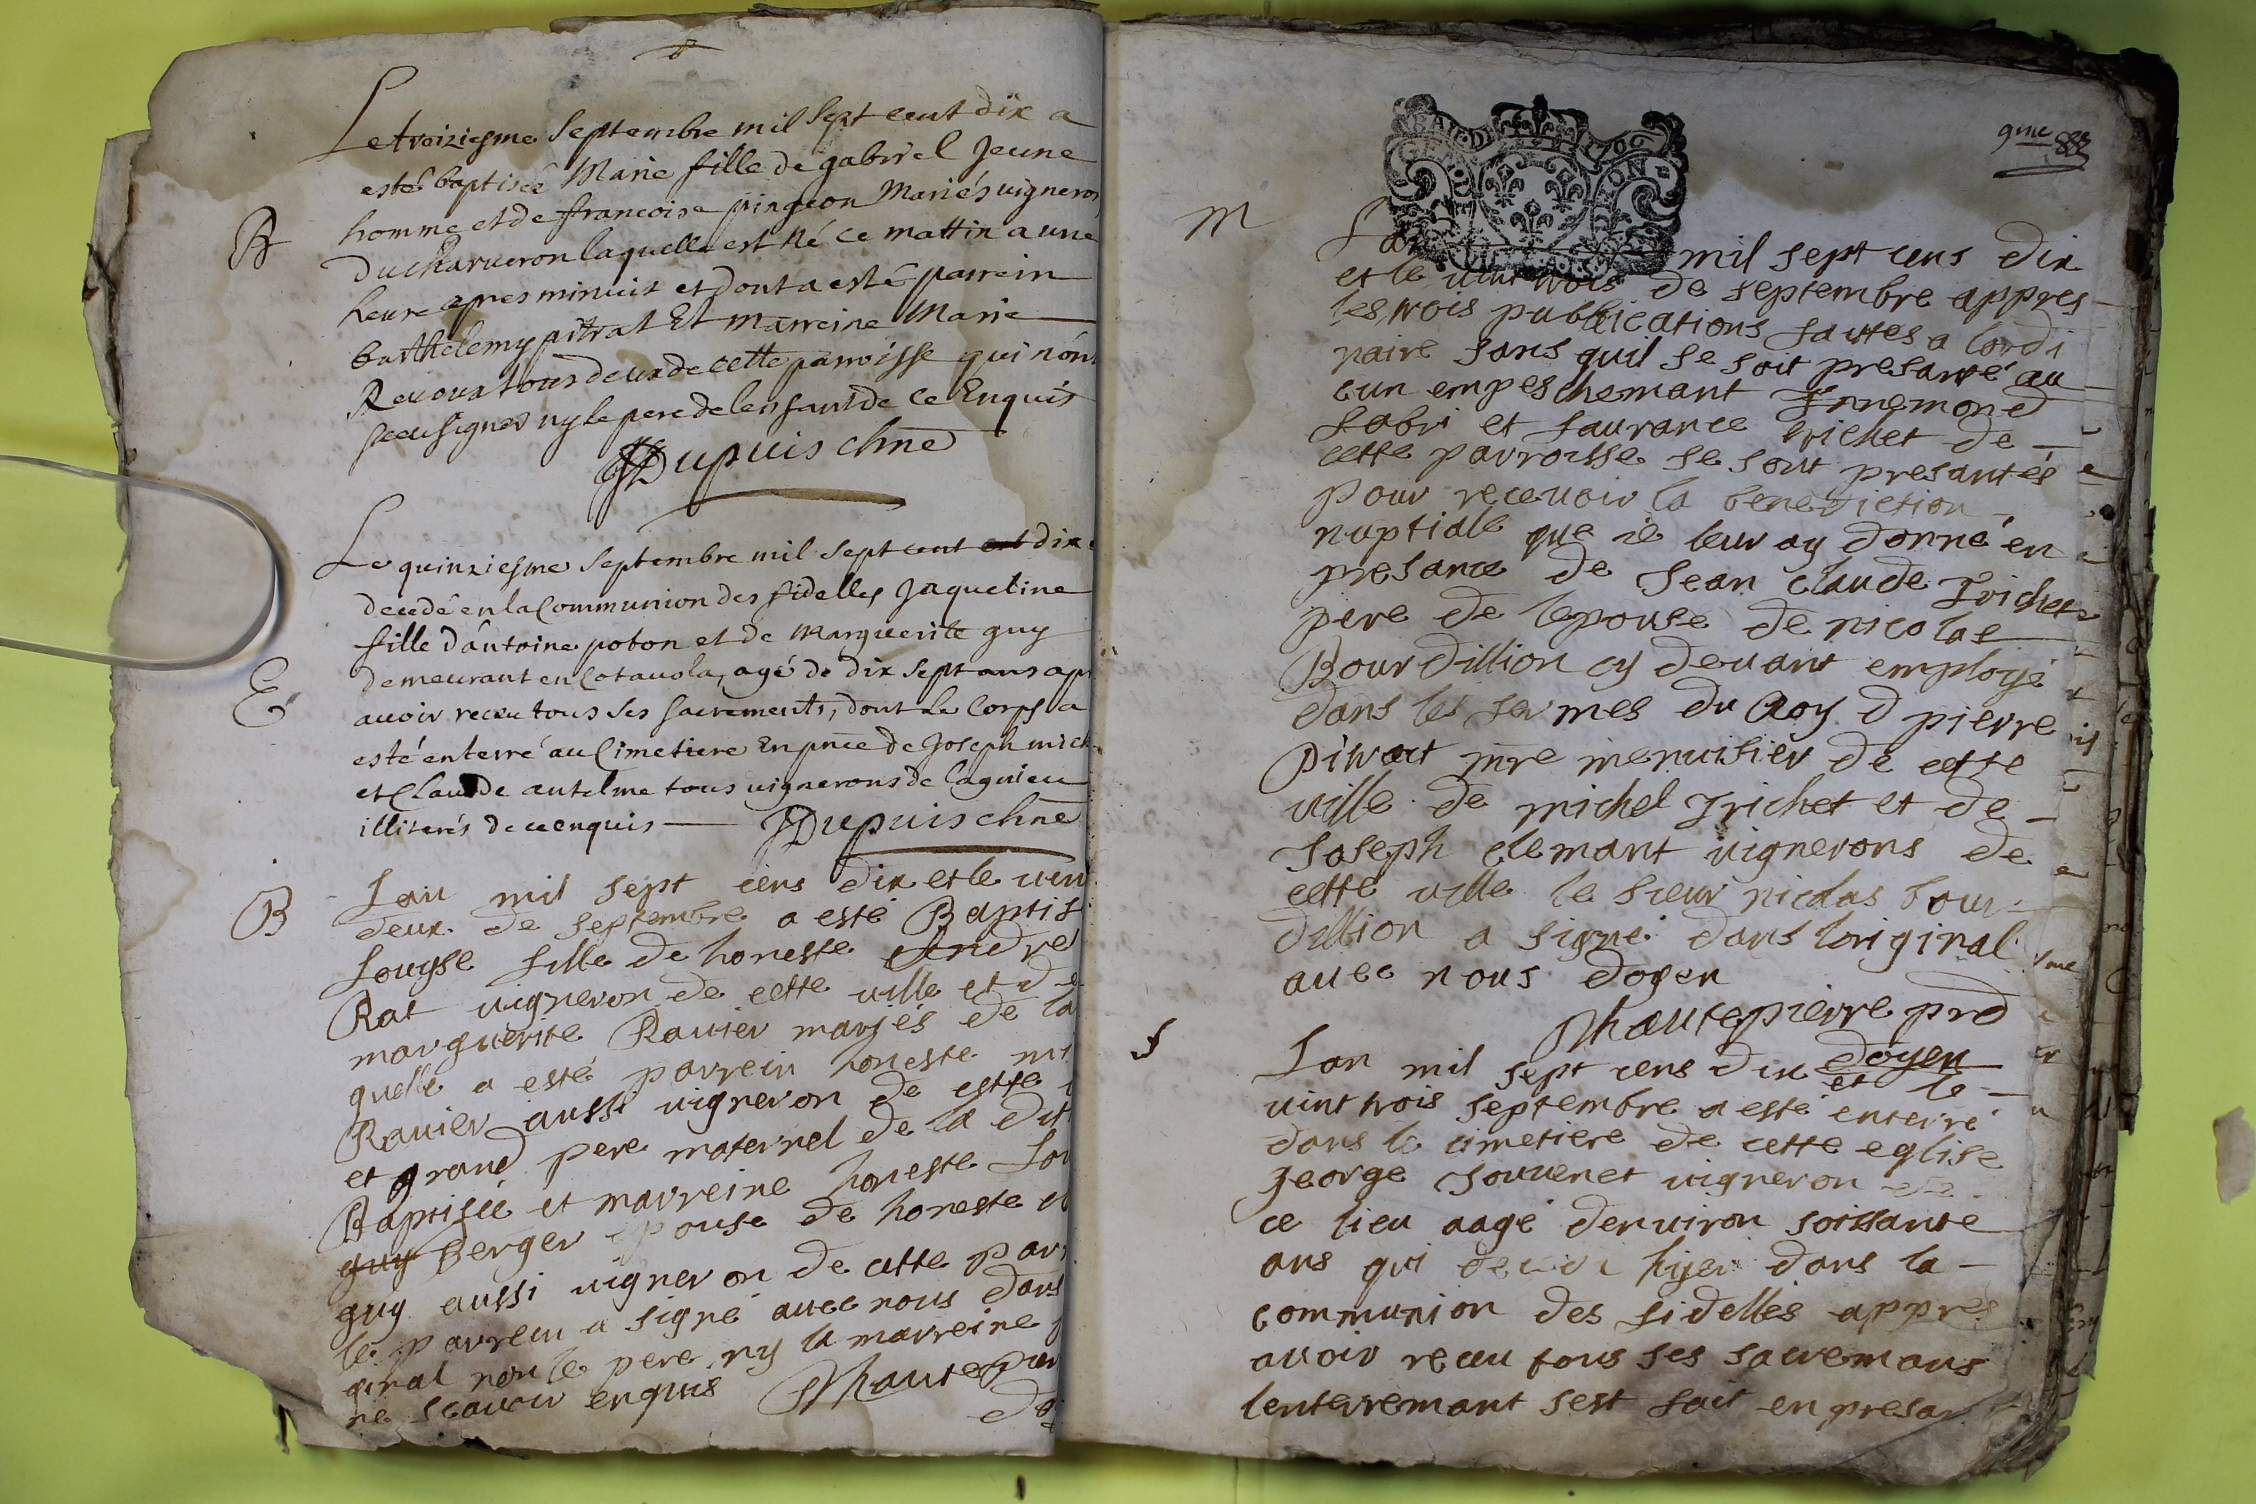 Le troiziesme Septembre mil Sept cent dix a
esté baptisée Marie fille de gabriel Jeune
homme et de francoise pingeon Mariés vigneron
B
du charueron laquelle est Né ce mattin a une
heure apres minuit et dont a esté parrein
barthelemy pitrat Et marreine Marie
Reuoux tous deux de cette parroisse qui n'ont
sceu signer ny le pere de lenfant de ce Enquis
JDupuis chne
Le quinziesme Septembre mil Sept cent cent dix
decedé en la Communion des fidelles Jaqueline
fille d'antoine poton et de Marguerite guy
E
demeurant en Cotauola, agé de dix Sept ans apr
auoir receu tous ses sacrements, dont Le Corps a
esté enterré au Cimetiere En pnce de Joseph mich
et Claude antelme tous vignerons de lagnieu
illiterés de ce enquis JDupuis chne
B
Lan mil sept cens dix et le vin
deux de septembre a esté Baptis
Louyse fille de honeste Andre
Rat vigneron de cette ville et de
marguerite Rauier maryés de la
quelle a esté parrein honeste
Rauier aussi vigneron de cette
et grand pere maternel de la dit
Baptisée et marreine honeste Lou
guy Berger epouse de honeste
guy aussi vigneron de cette parr
le parrein a signé auec nous dans
ginal non le pere ny la marreine
ne scauoir enquis Dhautepier
do
GENERALITE DE DIJON
9me
M
Lan mil sept cens dix
et le vint trois de septembre appres
les trois publications faittes a lordi
naire sans quil se soit presanté au
cun empeschemant Ennemond
fabri et Laurance trichet de
cette parroisse se sont presantés
pour receuoir la benediction
nuptiale que ie leur ay donné en
presance de Jean claude Trichet
pere de lepouse de nicolas
Bourdillion cy deuant employé
dans les fermes du Roy d pierre
Pitrat mre menuisier de cette
ville de michel Trichet et de
Joseph clemant vignerons de
cette ville le sieur nicolas bour
dillion a signé dans loriginal
auec nous doyen
Dhautepierre prd
doyen
S
Lan mil sept cens dix et le
vint trois septembre a esté enterré
dans le cimetiere de cette eglise
george Jouuenet vigneron de
ce lieu aagé denuiron soissante
ans qui deceda hyer dans la
communion des fidelles appres
auoir receu tous ses sacremans
lenterremant sest fait en presan